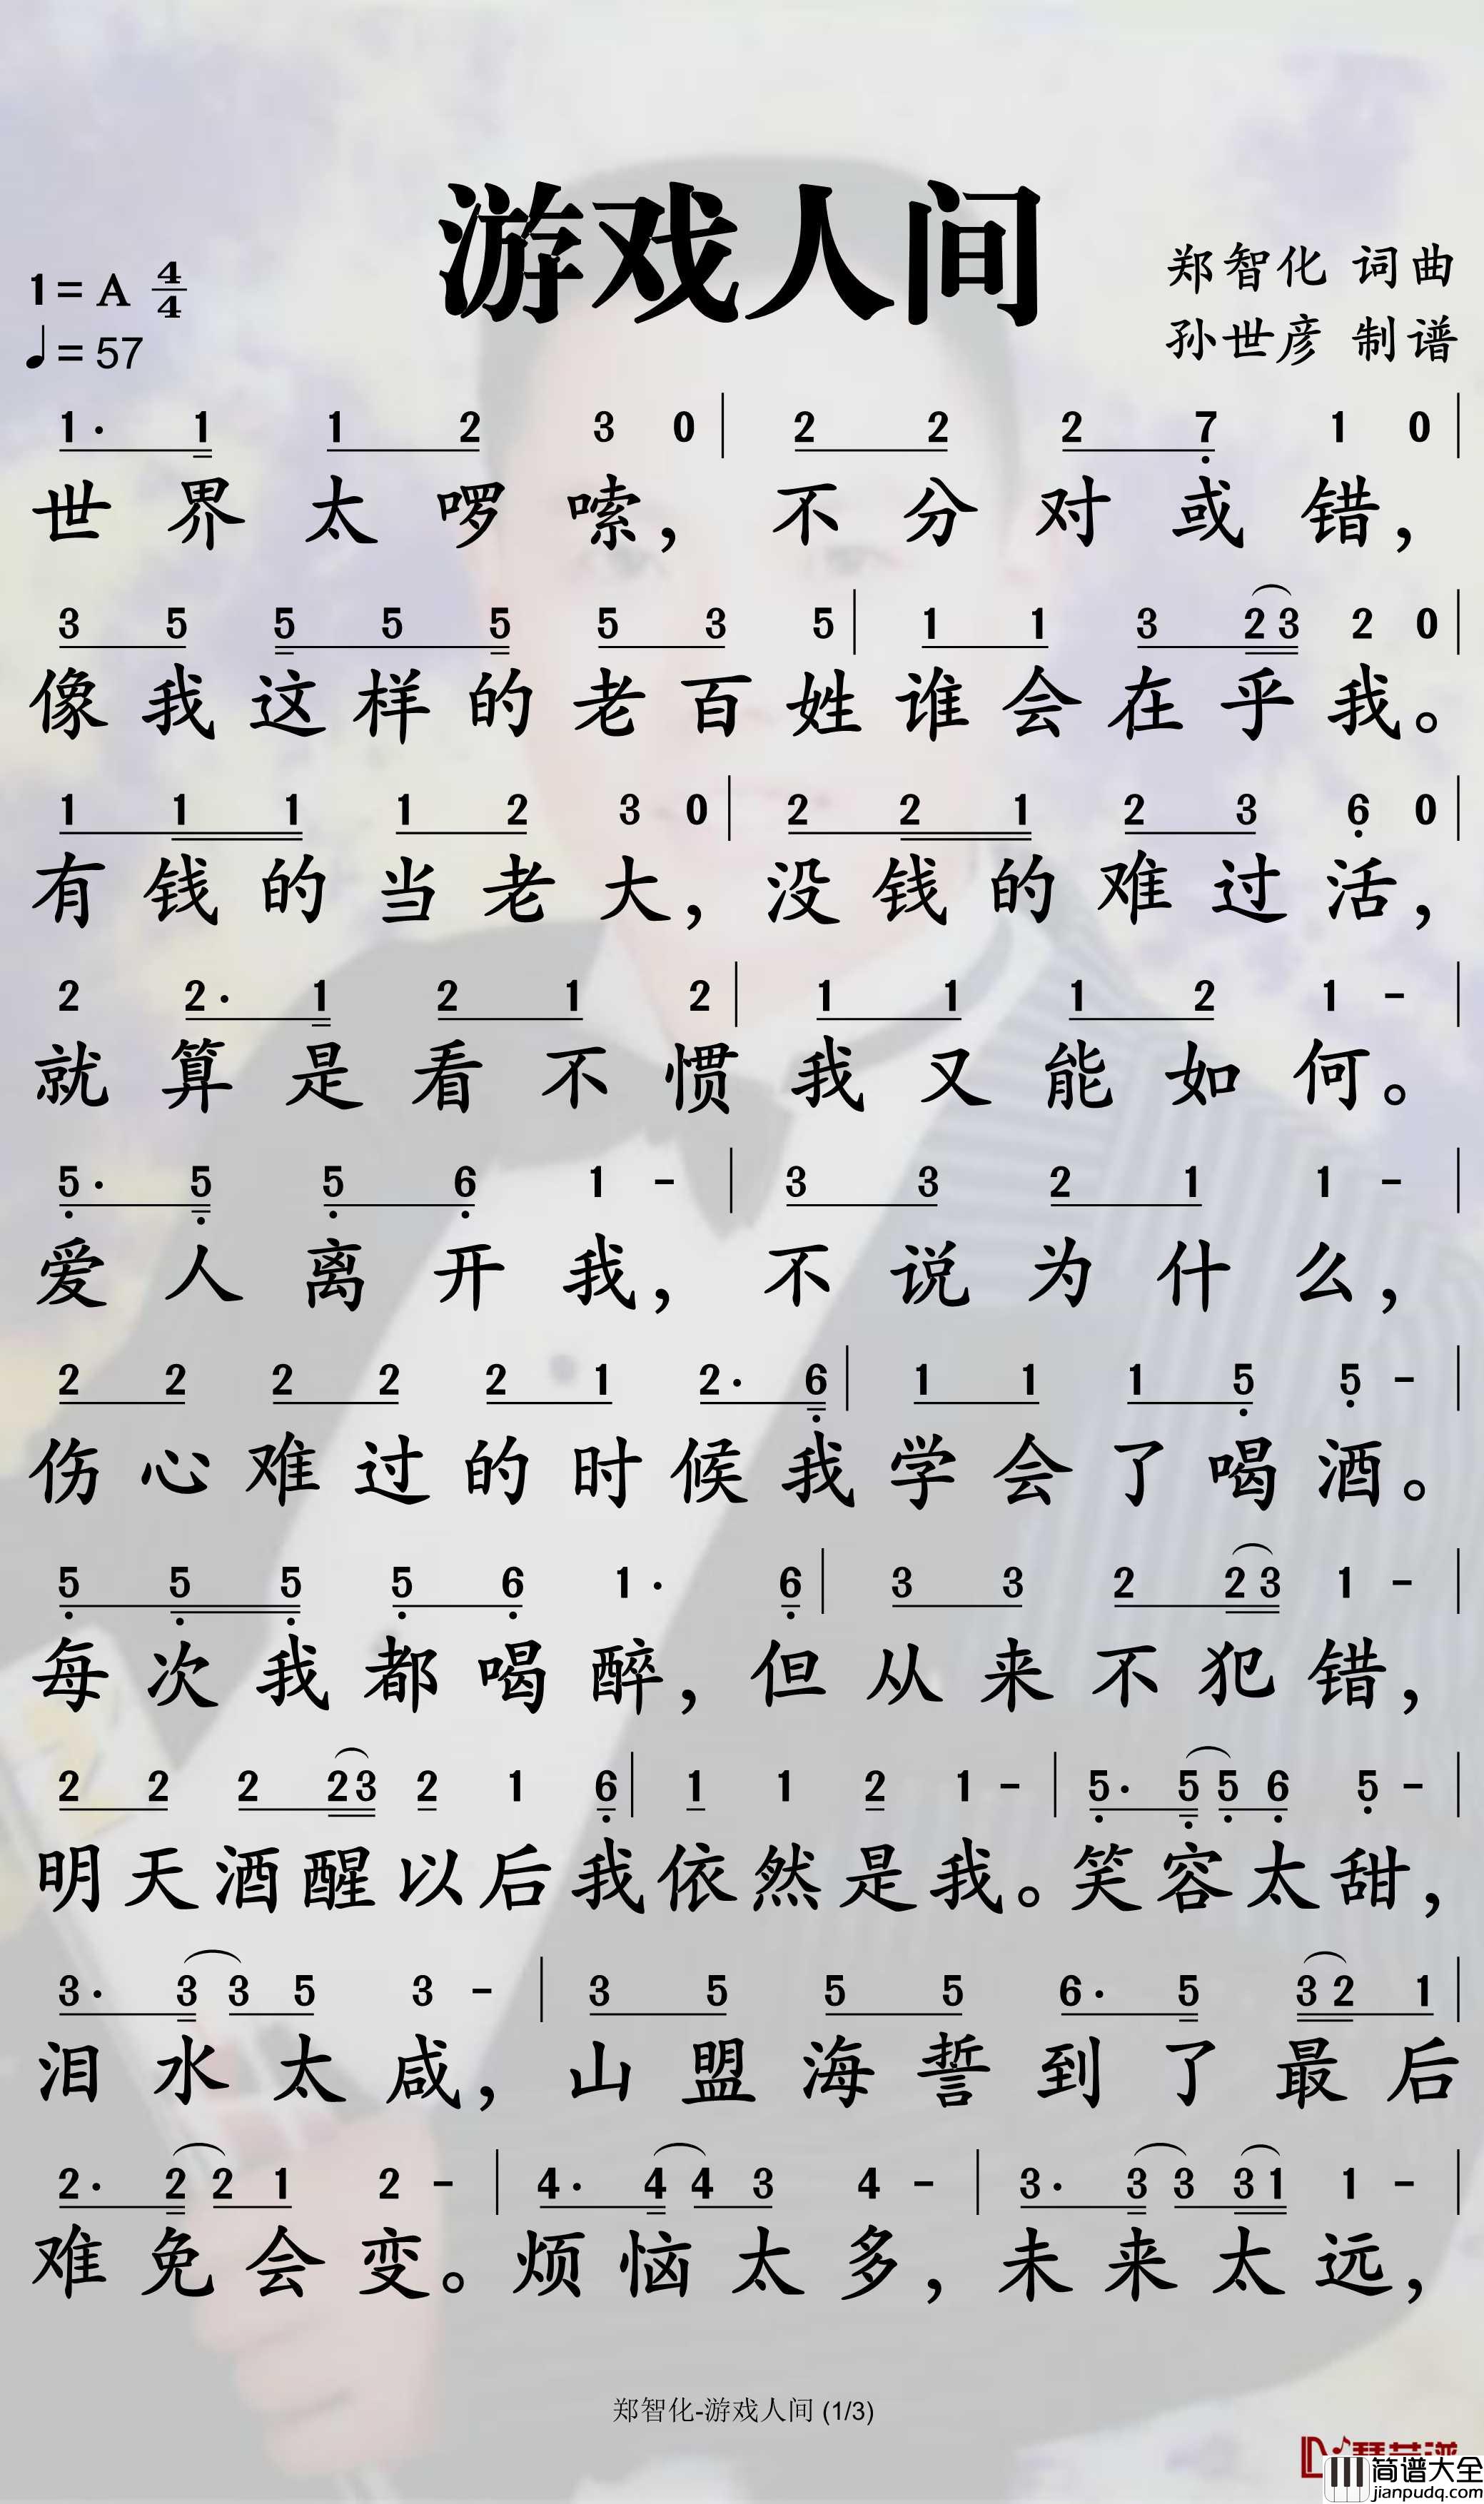 游戏人间
1=A 4/4
♩=57
郑智化 词曲
孙世彦 制谱
1· 1 1 2 3 0 | 2 2 2 7̣ 1 0 |
世界太啰嗦，不分对或错，
3 5 5 5 5 5 3 5 | 1 1 3 2 3 2 0 |
像我这样的老百姓谁会在乎我。
1 1 1 1 2 3 0 | 2 2 1 2 3 6̣ 0 |
有钱的当老大，没钱的难过活，
2 2· 1 2 1 2 | 1 1 1 2 1 - |
就算是看不惯我又能如何。
5̣· 5̣ 5̣ 6̣ 1 - | 3 3 2 1 1 - |
爱人离开我，不说为什么，
2 2 2 2 2 1 2· 6̣ | 1 1 1 5̣ 5̣ - |
伤心难过的时候我学会了喝酒。
5̣ 5̣ 5̣ 5̣ 6̣ 1· 6̣ | 3 3 2 2 3 1 - |
每次我都喝醉，但从来不犯错，
2 2 2 2 3 2 1 6̣ | 1 1 2 1 - | 5̣· 5̣ 5̣ 6̣ 5̣ - |
明天酒醒以后我依然是我。笑容太甜，
3· 3 3 5 3 - | 3 5 5 5 6· 5 3 2 1 |
泪水太咸，山盟海誓到了最后
2· 2 2 1 2 - | 4· 4 4 3 4 - | 3· 3 3 3 1 1 - |
难免会变。烦恼太多，未来太远，
郑智化-游戏人间 (1/3)
简谱大全
jianpudq.com